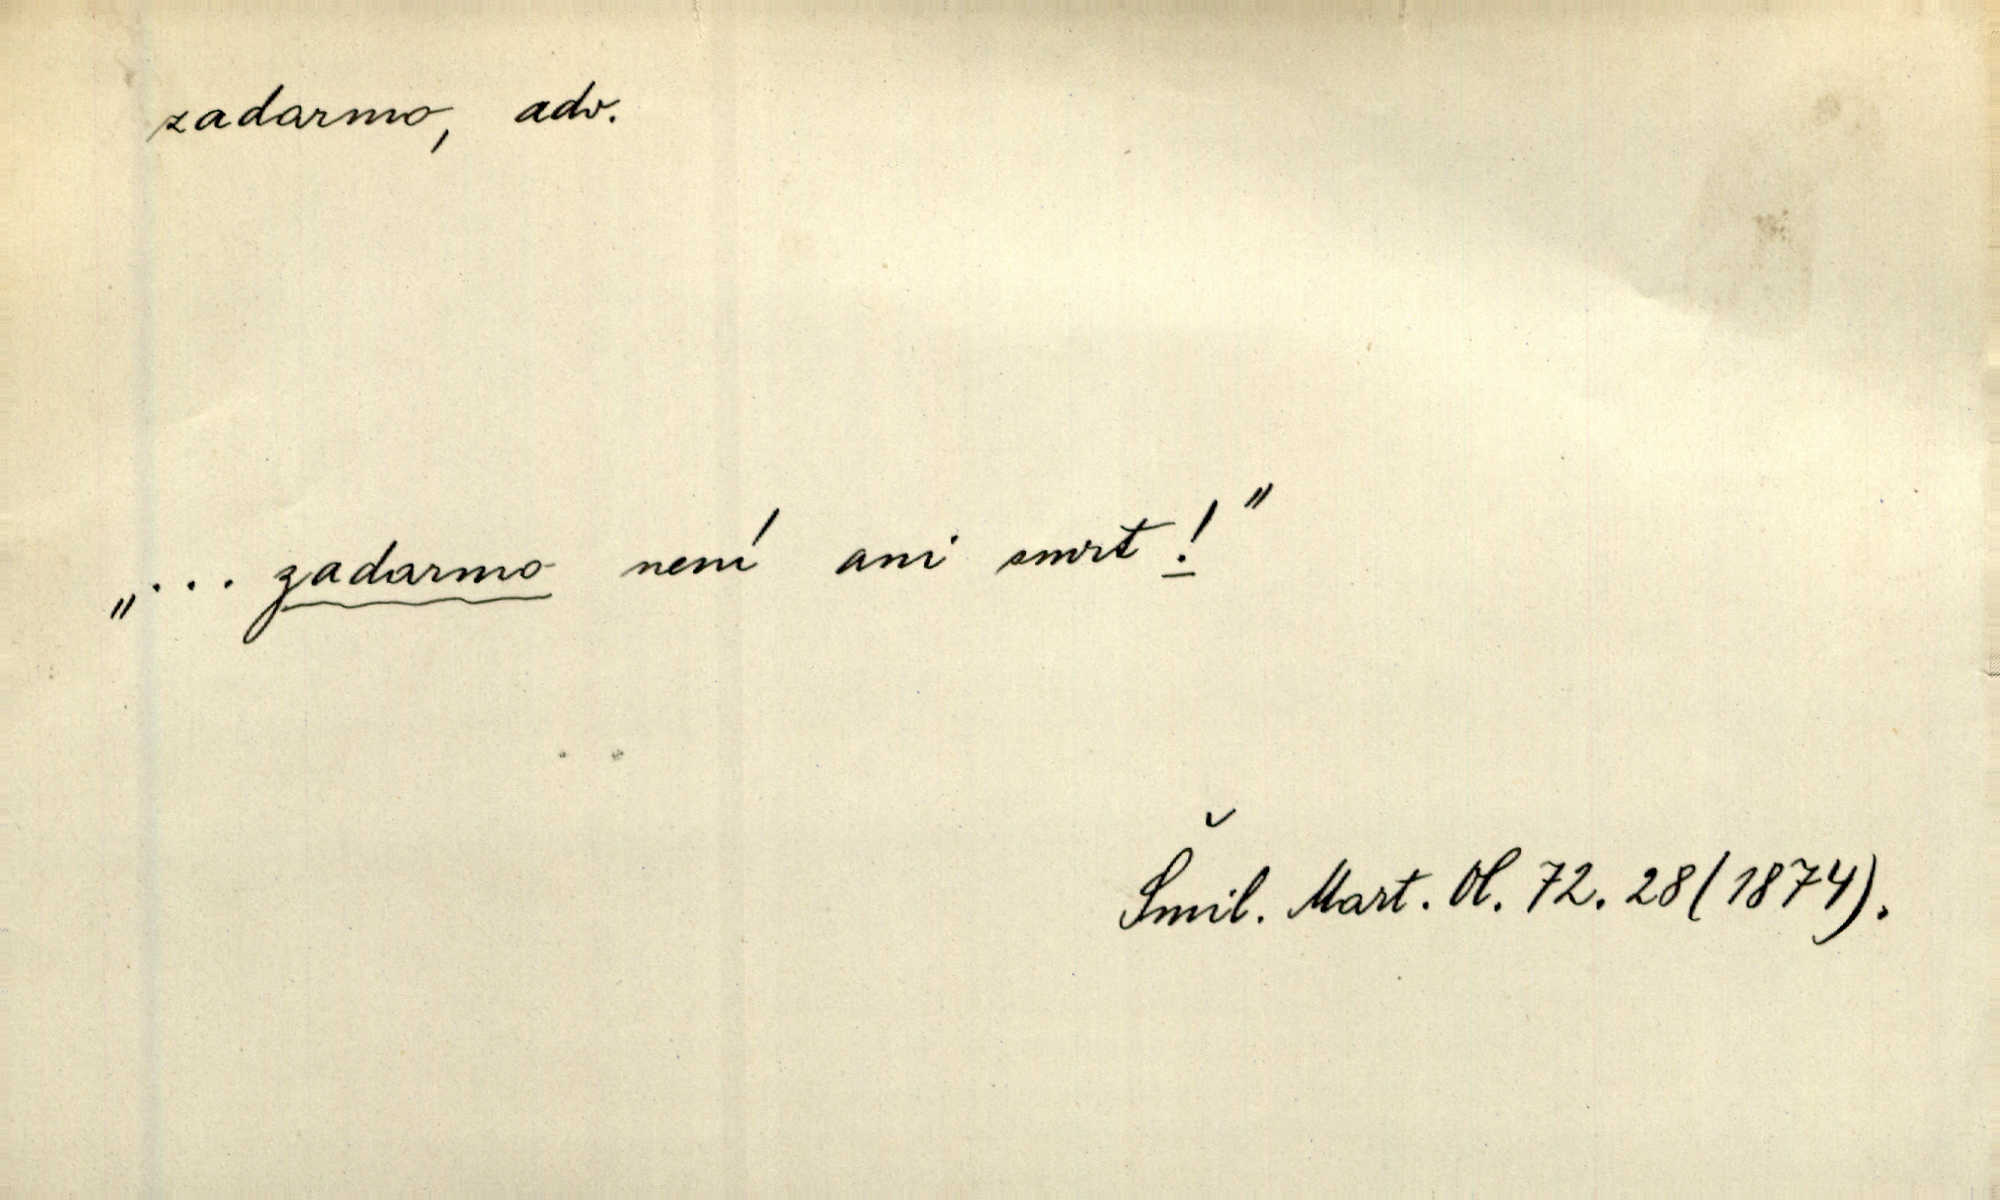 zadarmo, adv.
„... zadarmo není ani smrt!"
Šmil. Mart. Ol. 72. 28 (1874).